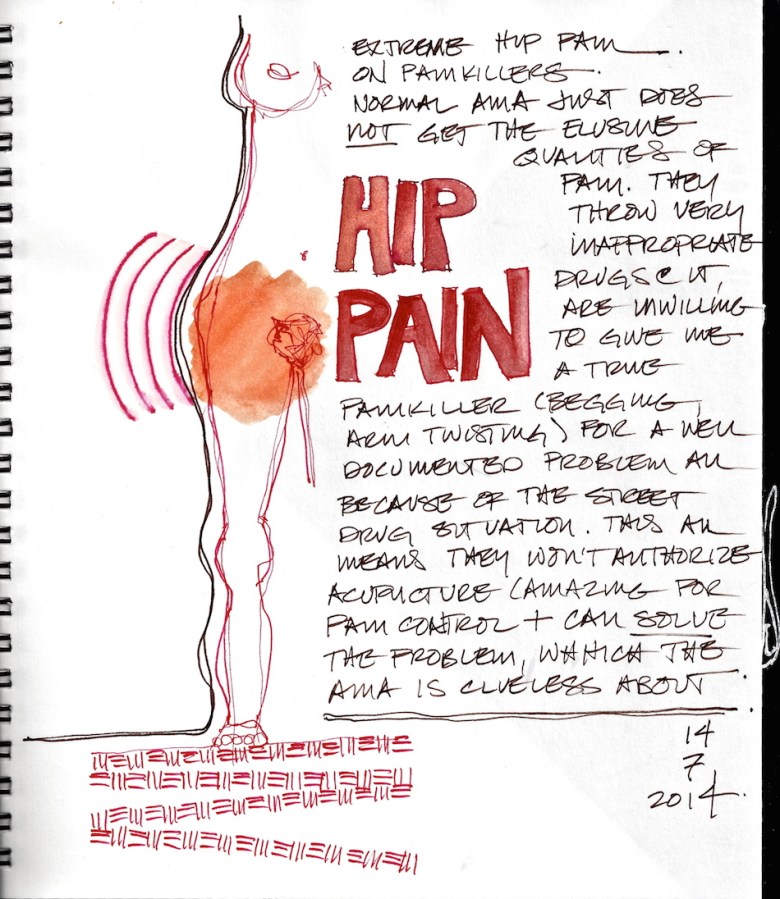 EXTREME HIP PAIN.
ON PAINKILLERS.
NORMAL AMA JUST DOES
NOT GET THE ELUSIVE
QUALITIES OF
PAIN. THEY
THROW VERY
INAPPROPRIATE
DRUGS @ IT,
ARE UNWILLING
TO GIVE ME
A TRUE
HIP
PAIN
PAINKILLER (BEGGING,
ARM TWISTING) FOR A WELL
DOCUMENTED PROBLEM ALL
BECAUSE OF THE STREET
DRUG SITUATION. THIS ALL
MEANS THEY WON'T AUTHORIZE
ACUPUCTURE (AMAZING FOR
PAIN CONTROL + CAN SOLVE
THE PROBLEM, WHICH THE
AMA IS CLUELESS ABOUT.
14
7
2014.